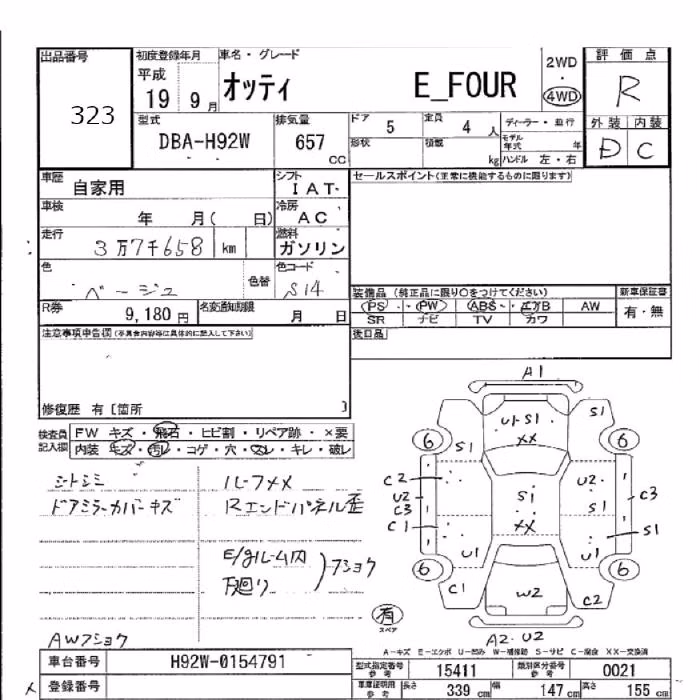 出品番号
323
初度登録年月
平成
19 9 月
車名・グレード
オッティ E_FOUR
2WD
・
4WD
評価点
R
外装 内装
D C
型式
DBA-H92W
排気量
657
CC
ドア 5
定員 4 人
形状
積載 kg
ディーラー・並行
モデル年式 年
ハンドル 左・右
車歴
自家用
シフト
IAT
車検
年 月( 日)
冷房
AC
走行
3万7千658 km
燃料
ガソリン
色
ベージュ
色替
色コード
S14
R券
9,180 円
名変通知期限
月 日
セールスポイント(正常に機能するものに限ります)
装備品 (純正品に限り○をつけてください)
PS・PW・ABS・エアB AW
SR ナビ TV カワ
新車保証書
有・無
後日品
注意事項申告欄(不具合内容等は具体的に記入して下さい)
修復歴 有 [箇所 ]
検査員
記入欄
FW キズ・飛石・ヒビ割・リペア跡・×要
内装 キズ・汚レ・コゲ・穴・スレ・キレ・破レ
シートシミ
ドアミラーカバーキズ
ルーフXX
Rエンドパネル歪
E/gルーム内
下廻り
フショク
AWフショク
A1
U1 S1
XX
S1
S1
6
6
C2
U2
C3
C1
S1
XX
U2
C3
S1
S1
U1
U1
6
6
C1
W2
C2
A2・U2
有
スペア
A-キズ E-エクボ U-凹み W-補修跡 S-サビ C-腐食 XX-交換済
車台番号
H92W-0154791
登録番号
型式指定番号
参考
15411
類別区分番号
参考
0021
車庫証明用
参考
長さ 339
幅 147 cm
高さ 155 cm